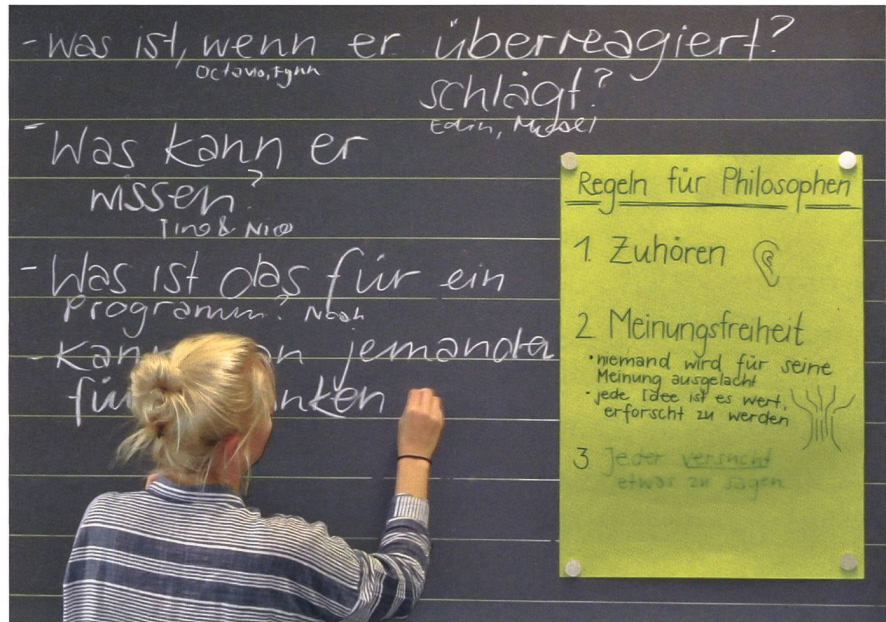 - was ist, wenn er überreagiert?
Octavio, Fynn
schlägt?
- Was kann er
wissen?
Tino & Nico
- Was ist das für ein
Programm? Noah
- jemanden
Regeln für Philosophen
1. Zuhören
2. Meinungsfreiheit
• niemand wird für seine
Meinung ausgelacht
• jede Idee ist es wert,
erforscht zu werden
3. Jeder versucht
etwas zu sagen